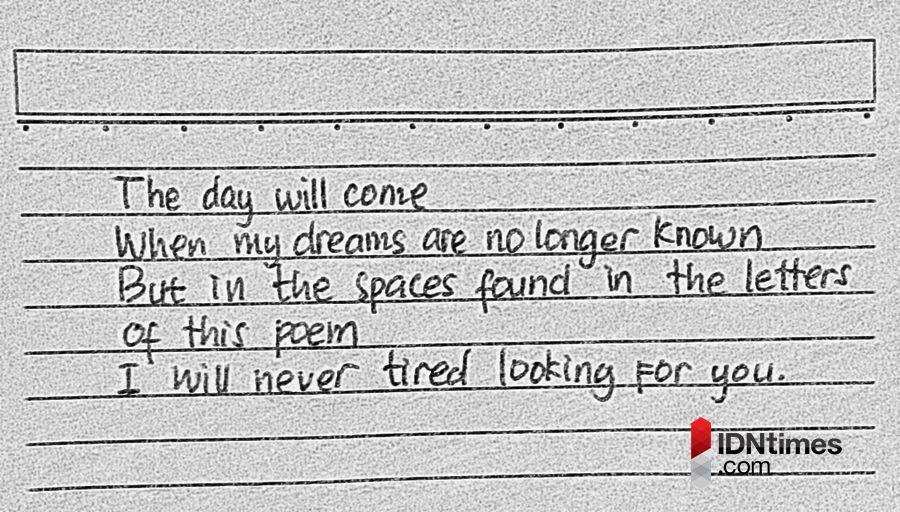 The day will come
When my dreams are no longer known
But in the spaces found in the letters
of this poem
I will never tired looking for you.
IDNtimes
.com